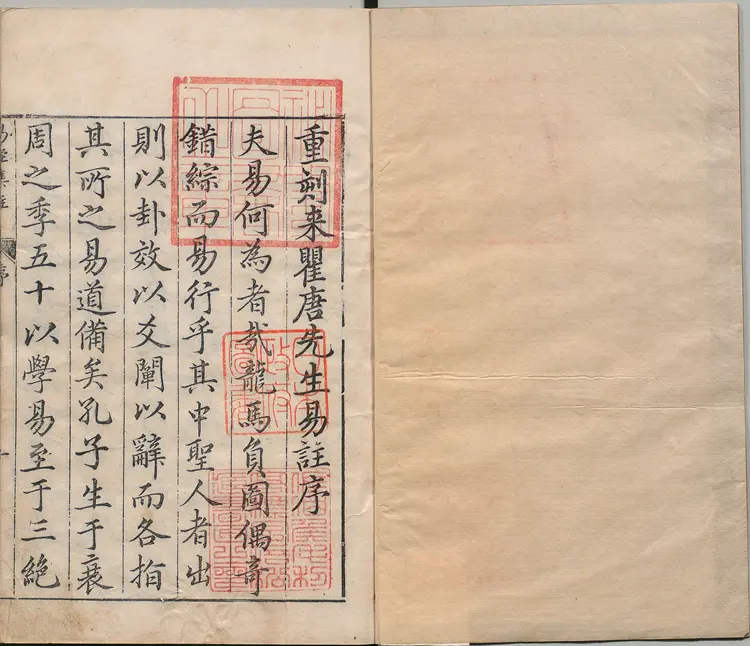 重刻来瞿唐先生易註序
夫易何為者㢤龍馬負圖偶竒
錯綜而易行乎其中聖人者出
則以卦效以爻闡以辭而各指
其所之易道備矣孔子生于衰
周之季五十以學易至于三絶
易經集註
序